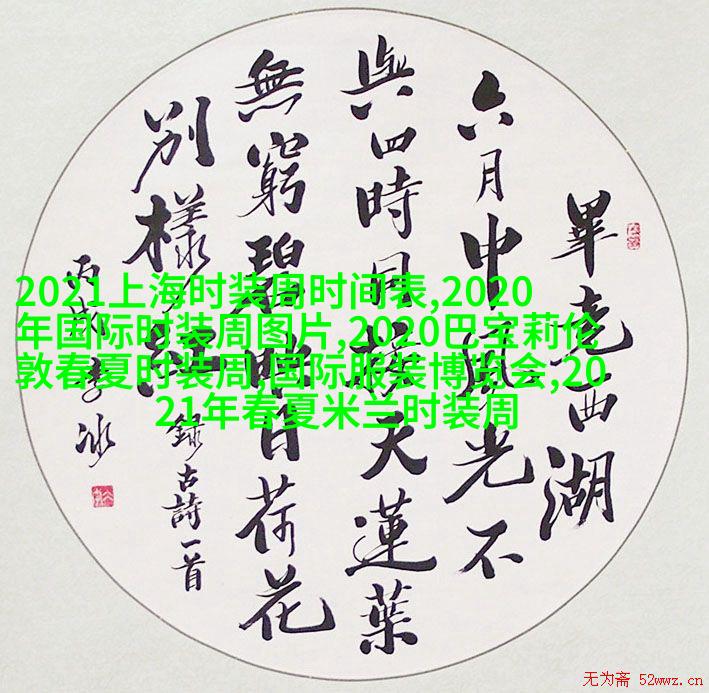 畢竟西湖
六月中風光不
與四時同接天蓮葉
無窮碧映日荷花
別樣紅
録古詩一首
李冰
2021上海时装周时间表,2020
年国际时装周图片,2020巴宝莉伦
敦春夏时装周,国际服装博览会,20
21年春夏米兰时装周
无为斋 52wwz.cn